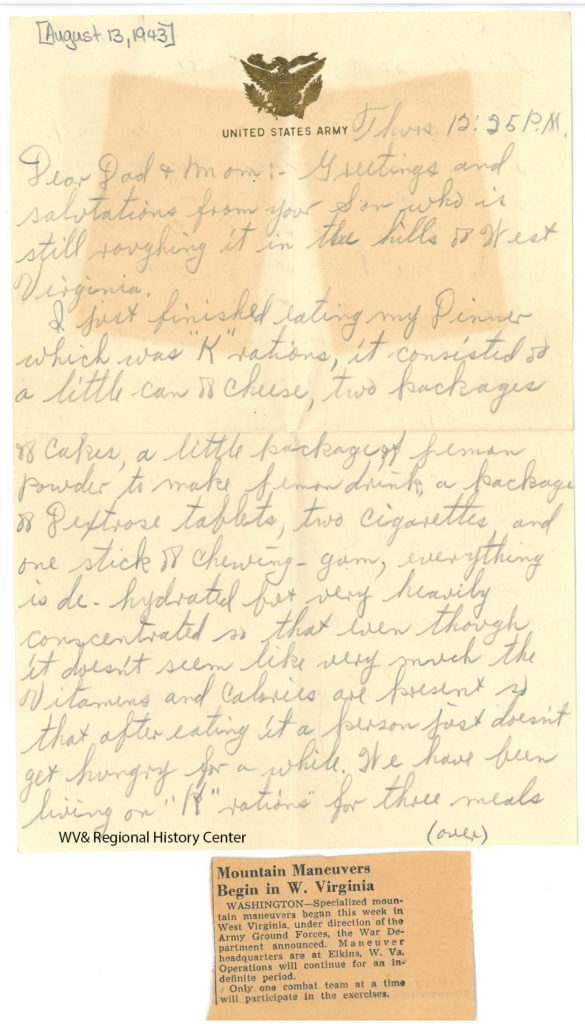 [August 13, 1943]
UNITED STATES ARMY
Thurs. 12:25 P.M.
Dear Dad & Mom:- Greetings and
salutations from your Son who is
still roughing it in the hills of West
Virginia.
I just finished eating my Dinner
which was "K" rations, it consisted of
a little can of cheese, two packages
of cakes, a little package of lemon
powder to make lemon drink, a package
of Dextrose tablets, two cigarettes, and
one stick of chewing-gum, everything
is de-hydrated but very heavily
conscentrated so that even though
it doesn't seem like very much the
Vitamens and Calories are present so
that after eating it a person just doesn't
get hungry for a while. We have been
living on "K" rations for three meals
(over)
WV& Regional History Center
Mountain Maneuvers
Begin in W. Virginia
WASHINGTON—Specialized moun-
tain maneuvers began this week in
West Virginia, under direction of the
Army Ground Forces, the War De-
partment announced. Maneuver
headquarters are at Elkins, W. Va.
Operations will continue for an in-
definite period.
Only one combat team at a time
will participate in the exercises.